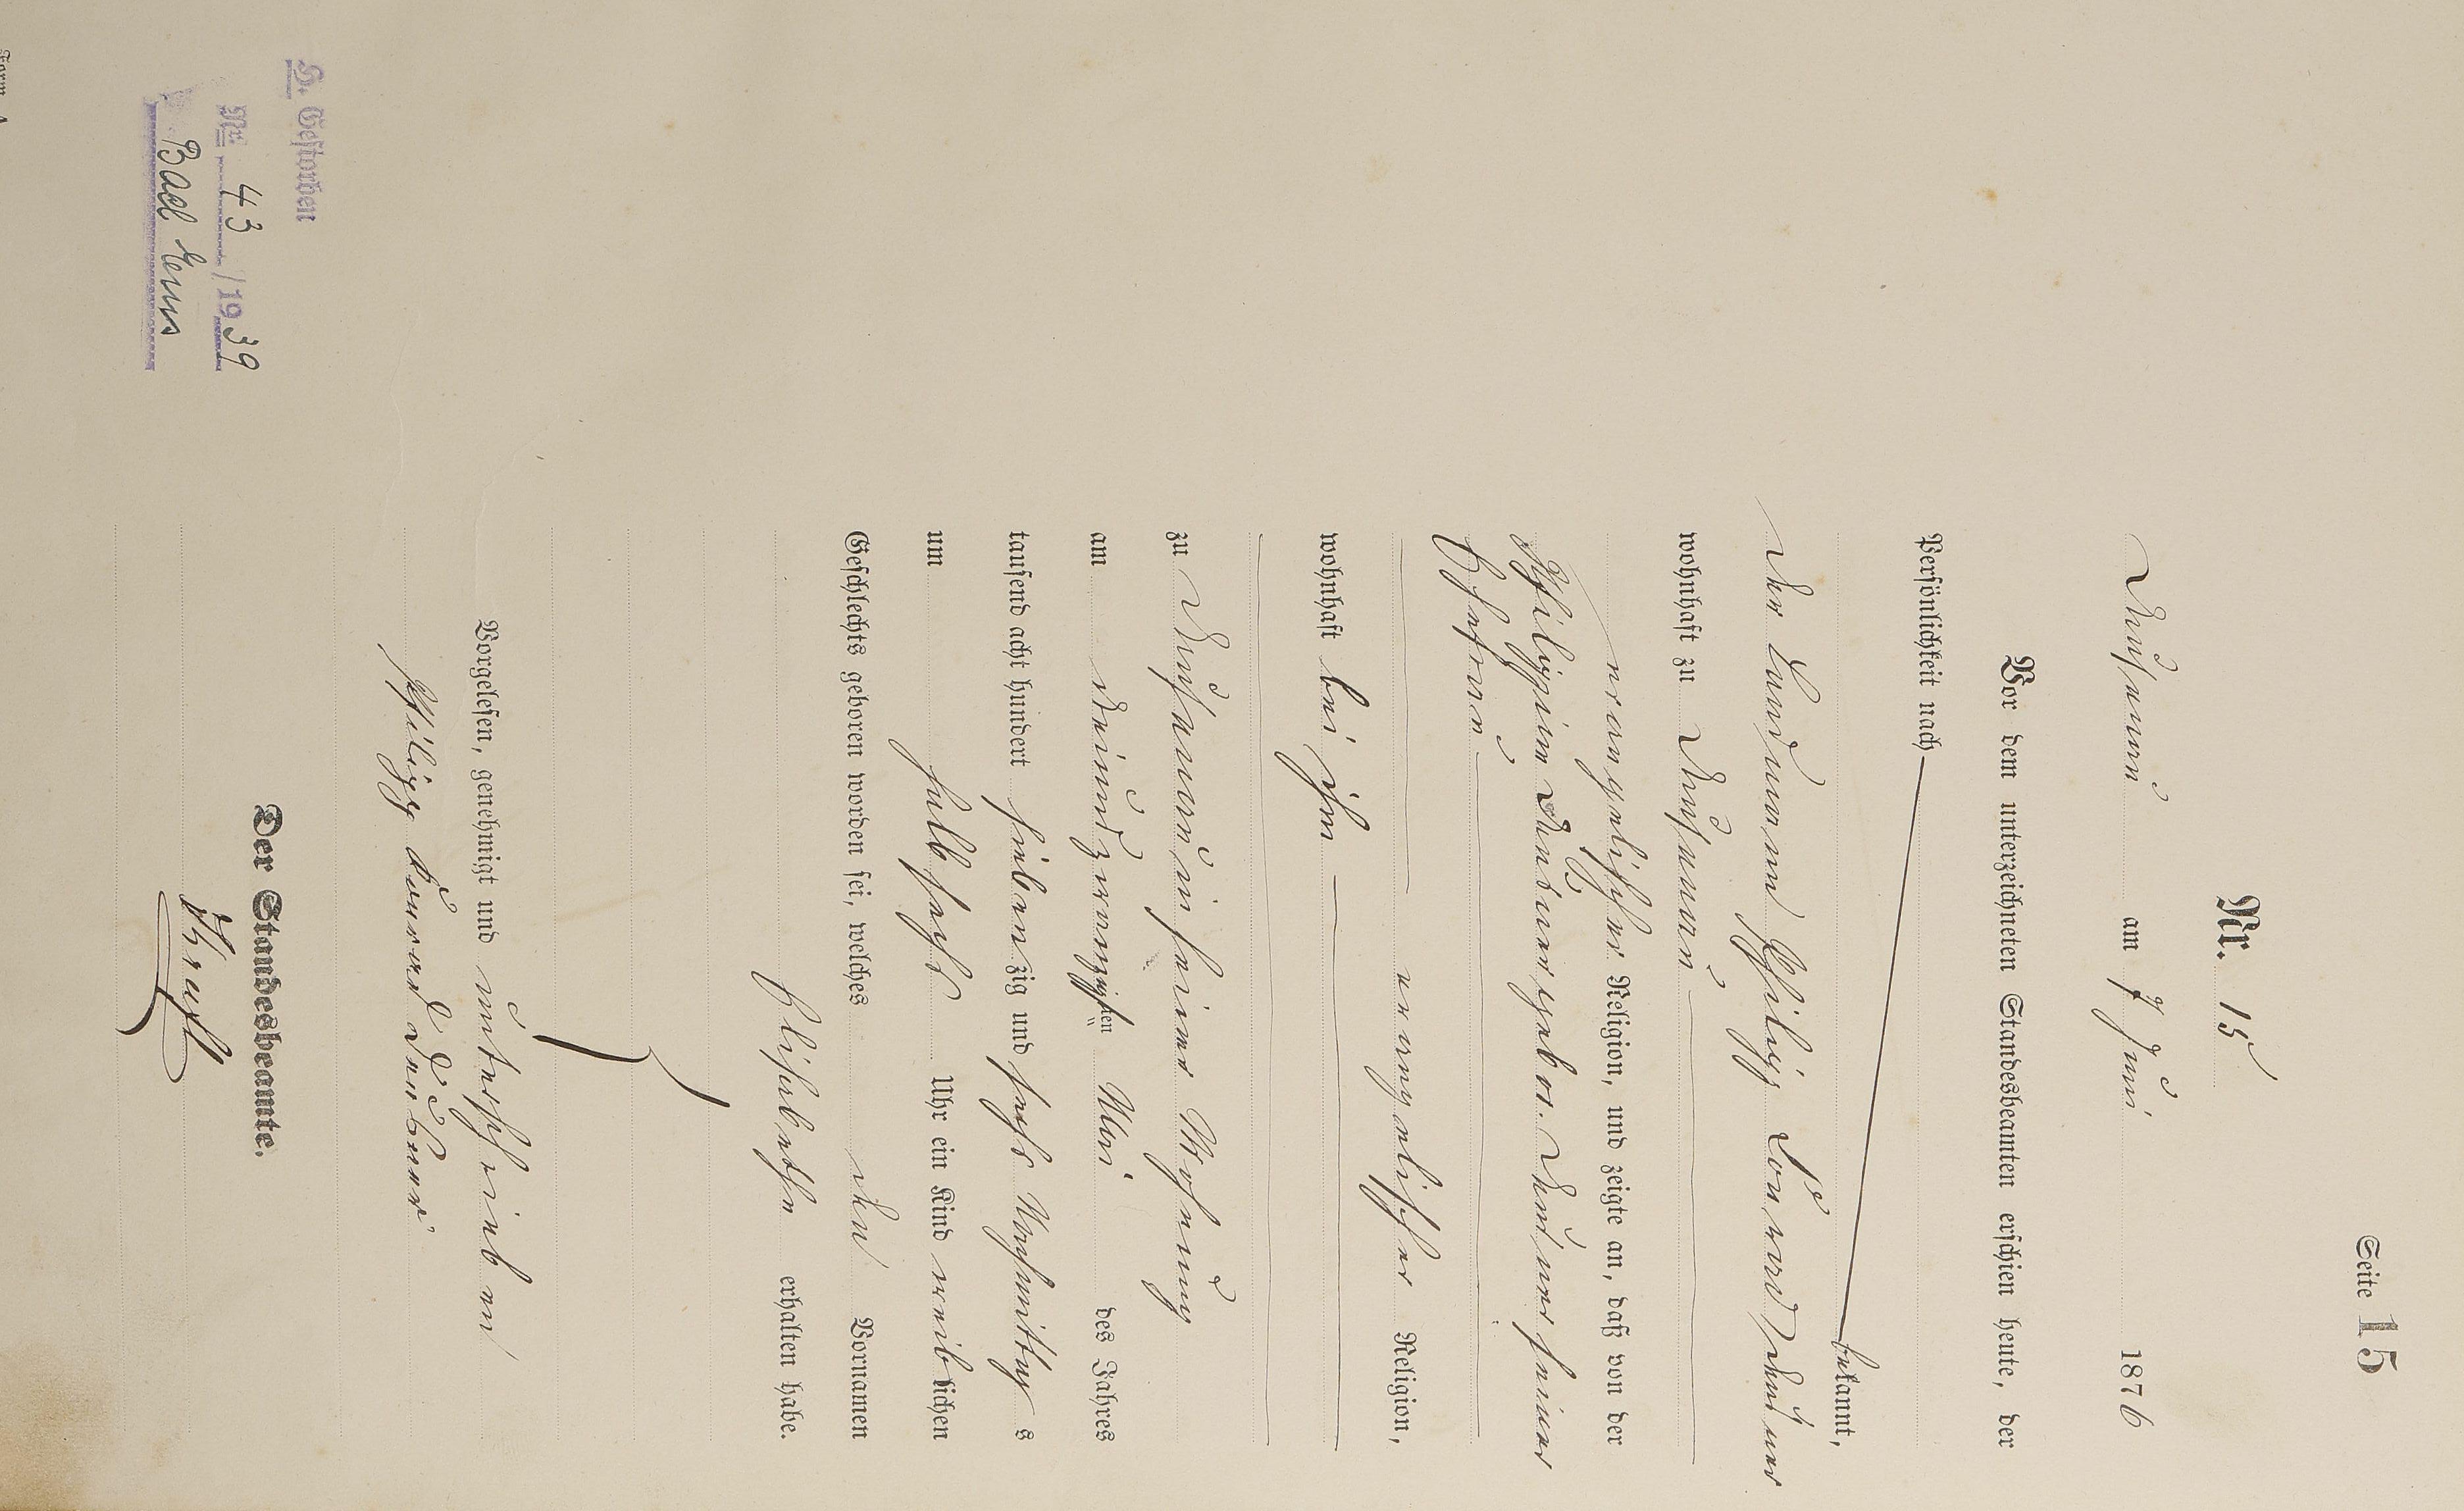 Seite 15
Nr. 15
Dausenau am 7 Juni 1876
Vor dem unterzeichneten Standesbeamten erschien heute, der
Persönlichkeit nach
bekannt,
der Landmann Philipp Konrad
wohnhaft zu Dausenau
evangelischer Religion, und zeigte an, daß von der
Philippine geborn. seiner
Ehefrau
evangelischer Religion,
wohnhaft bei ihm
zu Dausenau in seiner Wohnung
am einundzwanzigsten Mai des Jahres
tausend acht hundert siebenzig und sechs Nachmittags
um halb sechs Uhr ein Kind weiblichen
Geschlechts geboren worden sei, welches den Vornamen
Elisabethe erhalten habe.
Vorgelesen, genehmigt und unterschrieben
Philipp Konrad
Der Standesbeamte.
H. Gestorben
Nr. 43/1939
Bad Ems